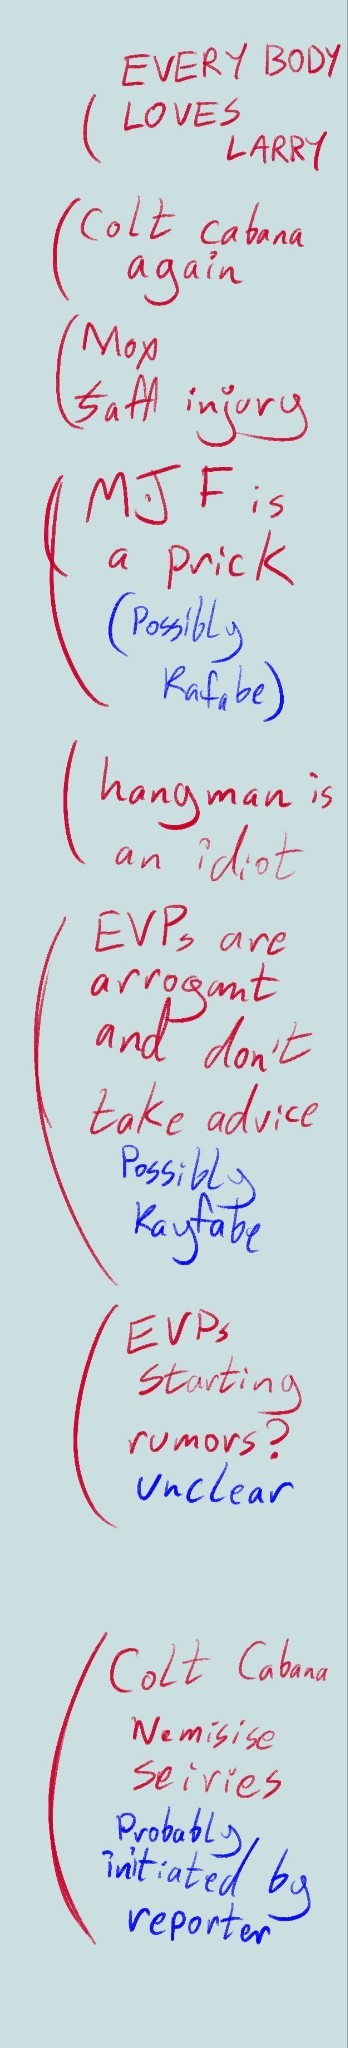 EVERY BODY
LOVES
LARRY
Colt cabana
again
Mox
staff injury
MJF is
a prick
(Possibly
Kafabe)
hangman is
an idiot
EVPs are
arrogant
and don't
take advice
Possibly
Kayfabe
EVPs
starting
rumors?
Unclear
Colt Cabana
Nemisise
seiries
Probably
initiated by
reporter